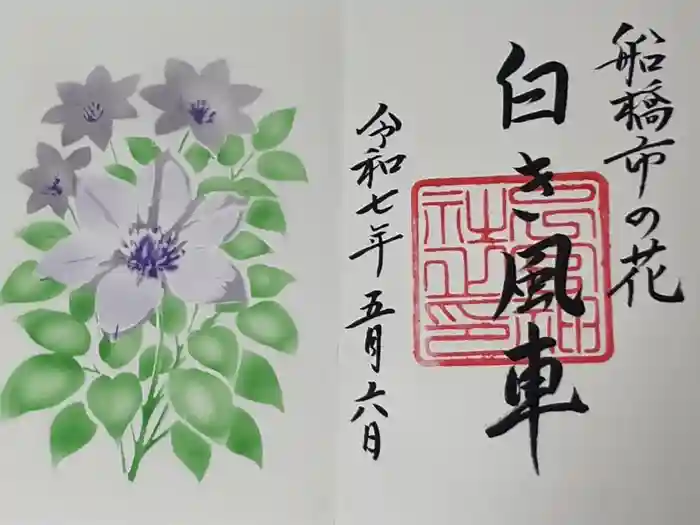 船橋市の花
白き風車
令和七年五月六日